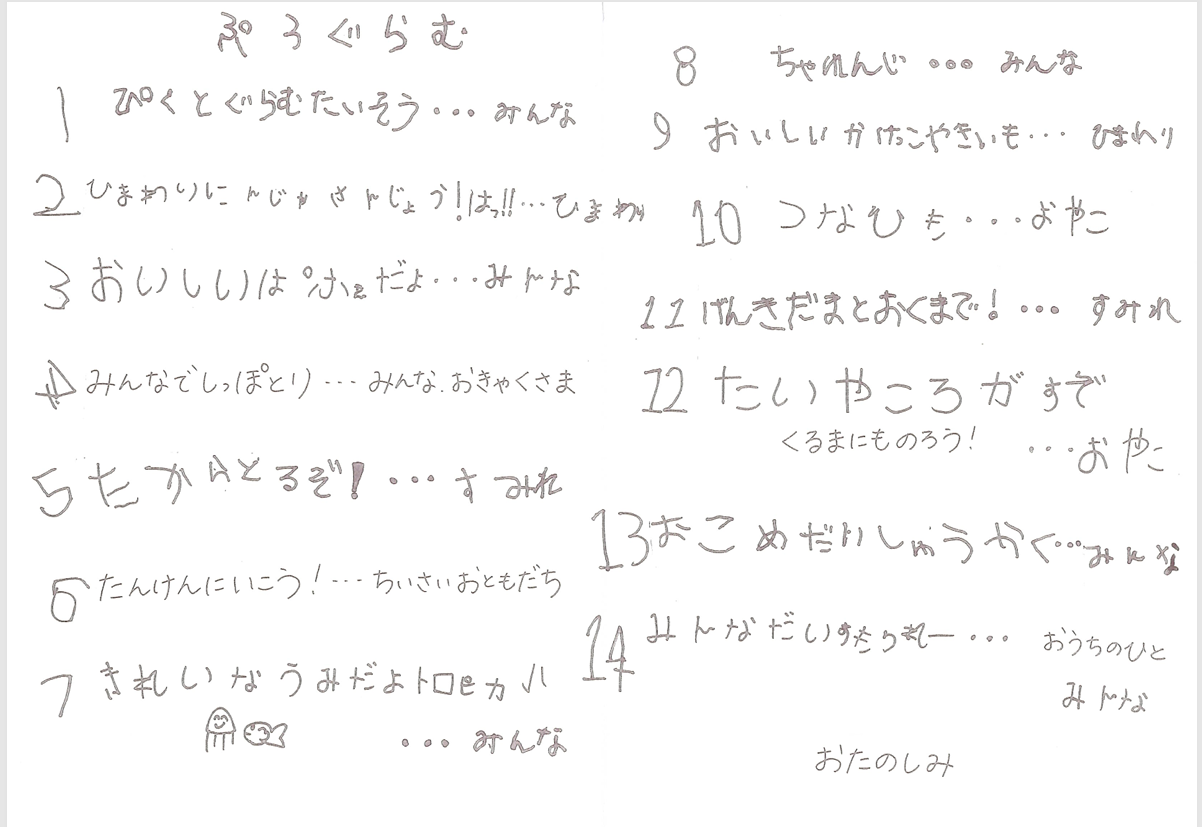 ぷろぐらむ
1 ぴくとぐらむたいそう・・・みんな
2 ひまわりにんじゃさんじょう!はっ!!・・・ひまわり
3 おいしいは ぱふぇだよ・・・みんな
4 みんなでしっぽとり・・・みんな.おきゃくさま
5 たからとるぞ!・・・すみれ
6 たんけんにいこう!・・・ちいさいおともだち
7 きれいなうみだよトロピカル
・・・みんな
8 ちゃれんじ・・・みんな
9 おいしいかけっこやきいも・・・ひまわり
10 つなひき・・・おやこ
11 げんきだまとおくまで!・・・すみれ
12 たいやころがすぞ
くるまにものろう!
・・・おやこ
13 おこめだいしゅうかく・・・みんな
14 みんなだいすきりれー・・・ おうちのひと
みんな
おたのしみ